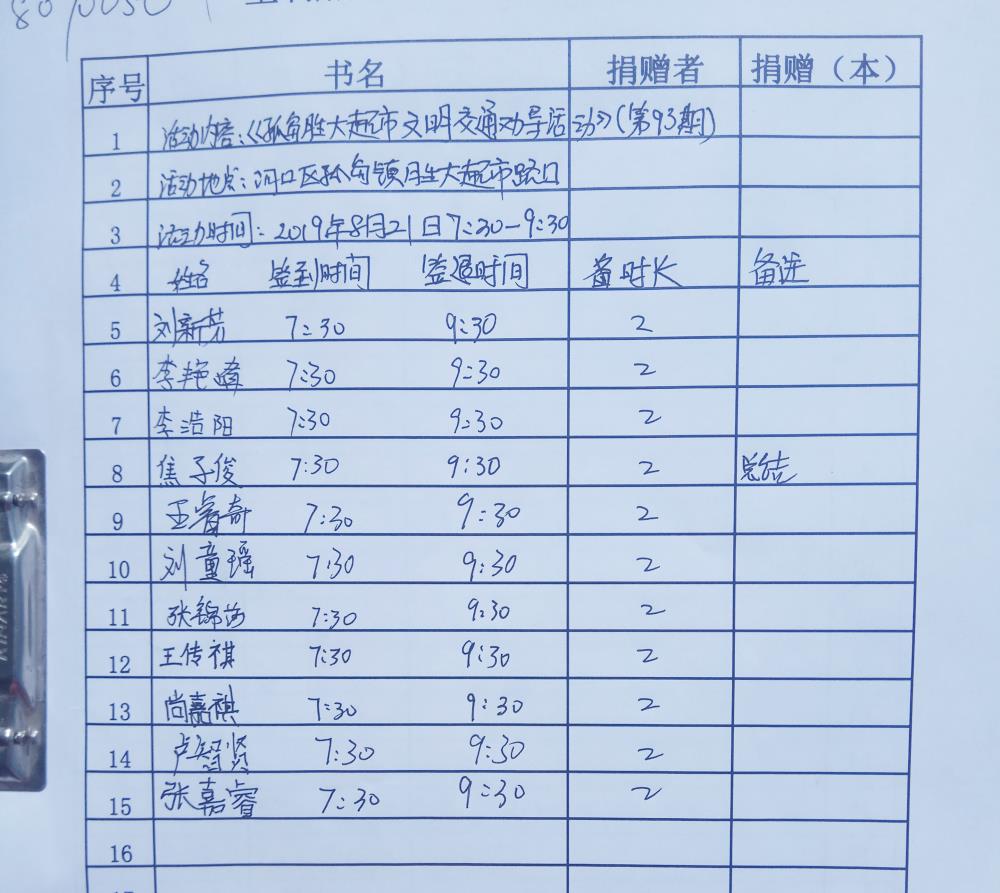 序号 书名 捐赠者 捐赠（本）
1 活动内容：《孤岛胜大超市文明交通劝导活动》（第93期）
2 活动地点：河口区孤岛镇胜大超市路口
3 活动时间：2019年8月21日7:30-9:30
4 姓名 签到时间 签退时间 时长 备注
5 刘新芳 7:30 9:30 2
6 李艳峰 7:30 9:30 2
7 李浩阳 7:30 9:30 2
8 焦子俊 7:30 9:30 2 总结
9 王睿奇 7:30 9:30 2
10 刘童瑶 7:30 9:30 2
11 张锦 7:30 9:30 2
12 王传祺 7:30 9:30 2
13 尚嘉祺 7:30 9:30 2
14 卢智贤 7:30 9:30 2
15 张嘉睿 7:30 9:30 2
16